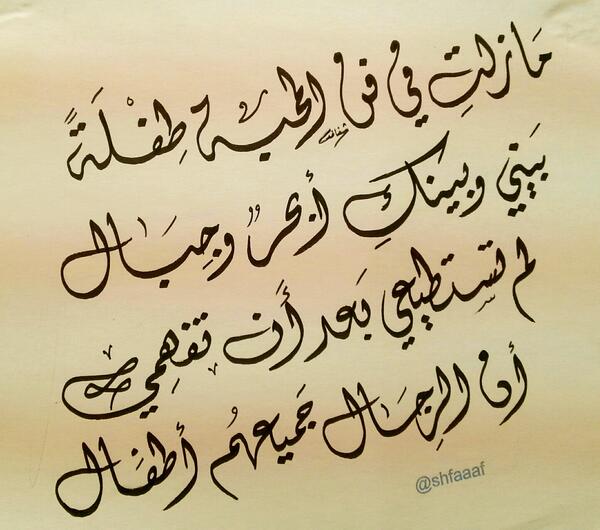 مَازلتِ في فن المحبة طِفلَةً
بَيني وبينكِ أبحرٌ وجِبَال
لم تستطيعي بَعد أَن تفهمِي
أن الرجَال جَميعهُم أطفَال
@shfaaaf